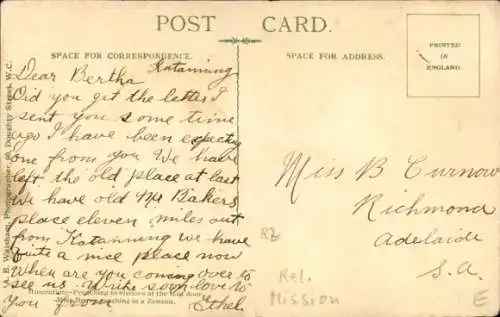 POST CARD.
SPACE FOR CORRESPONDENCE.
SPACE FOR ADDRESS.
PRINTED IN ENGLAND.
Katanning
Dear Bertha
Did you get the letter I
sent you some time
ago I have been expecting
one from you We have
left the old place at last
We have old Mr Bakers
place eleven miles out
from Katanning we have
quite a nice place now
When are you coming over to
see us. Write soon love to
you from Ethel.
Miss B Curnow
Richmond
Adelaide
S.A.
82
Rel.
Mission
E
Photographer, Doughty Street, W.C.